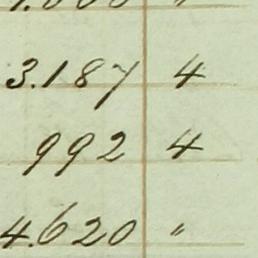 3.187 4
992 4
4.620 "